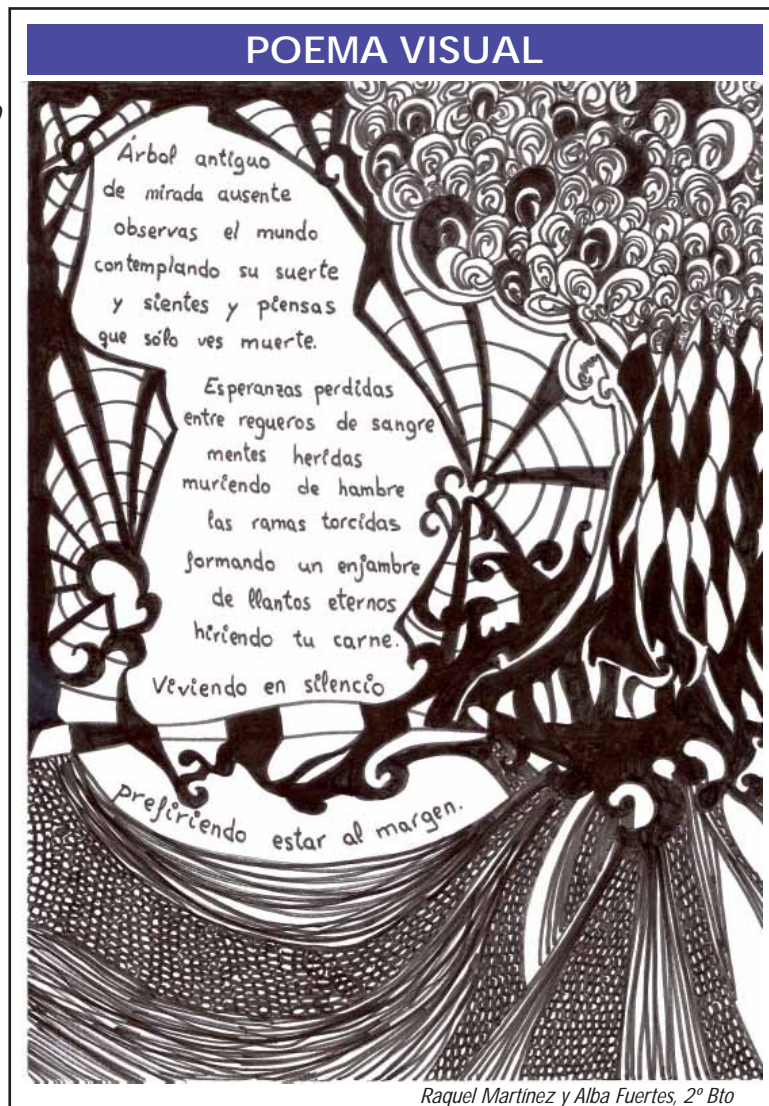 POEMA VISUAL
Árbol antiguo
de mirada ausente
observas el mundo
contemplando su suerte
y sientes y piensas
que sólo ves muerte.
Esperanzas perdidas
entre regueros de sangre
mentes heridas
muriendo de hambre
las ramas torcidas
formando un enjambre
de llantos eternos
hiriendo tu carne.
Viviendo en silencio
prefiriendo estar al margen.
Raquel Martínez y Alba Fuertes, 2º Bto